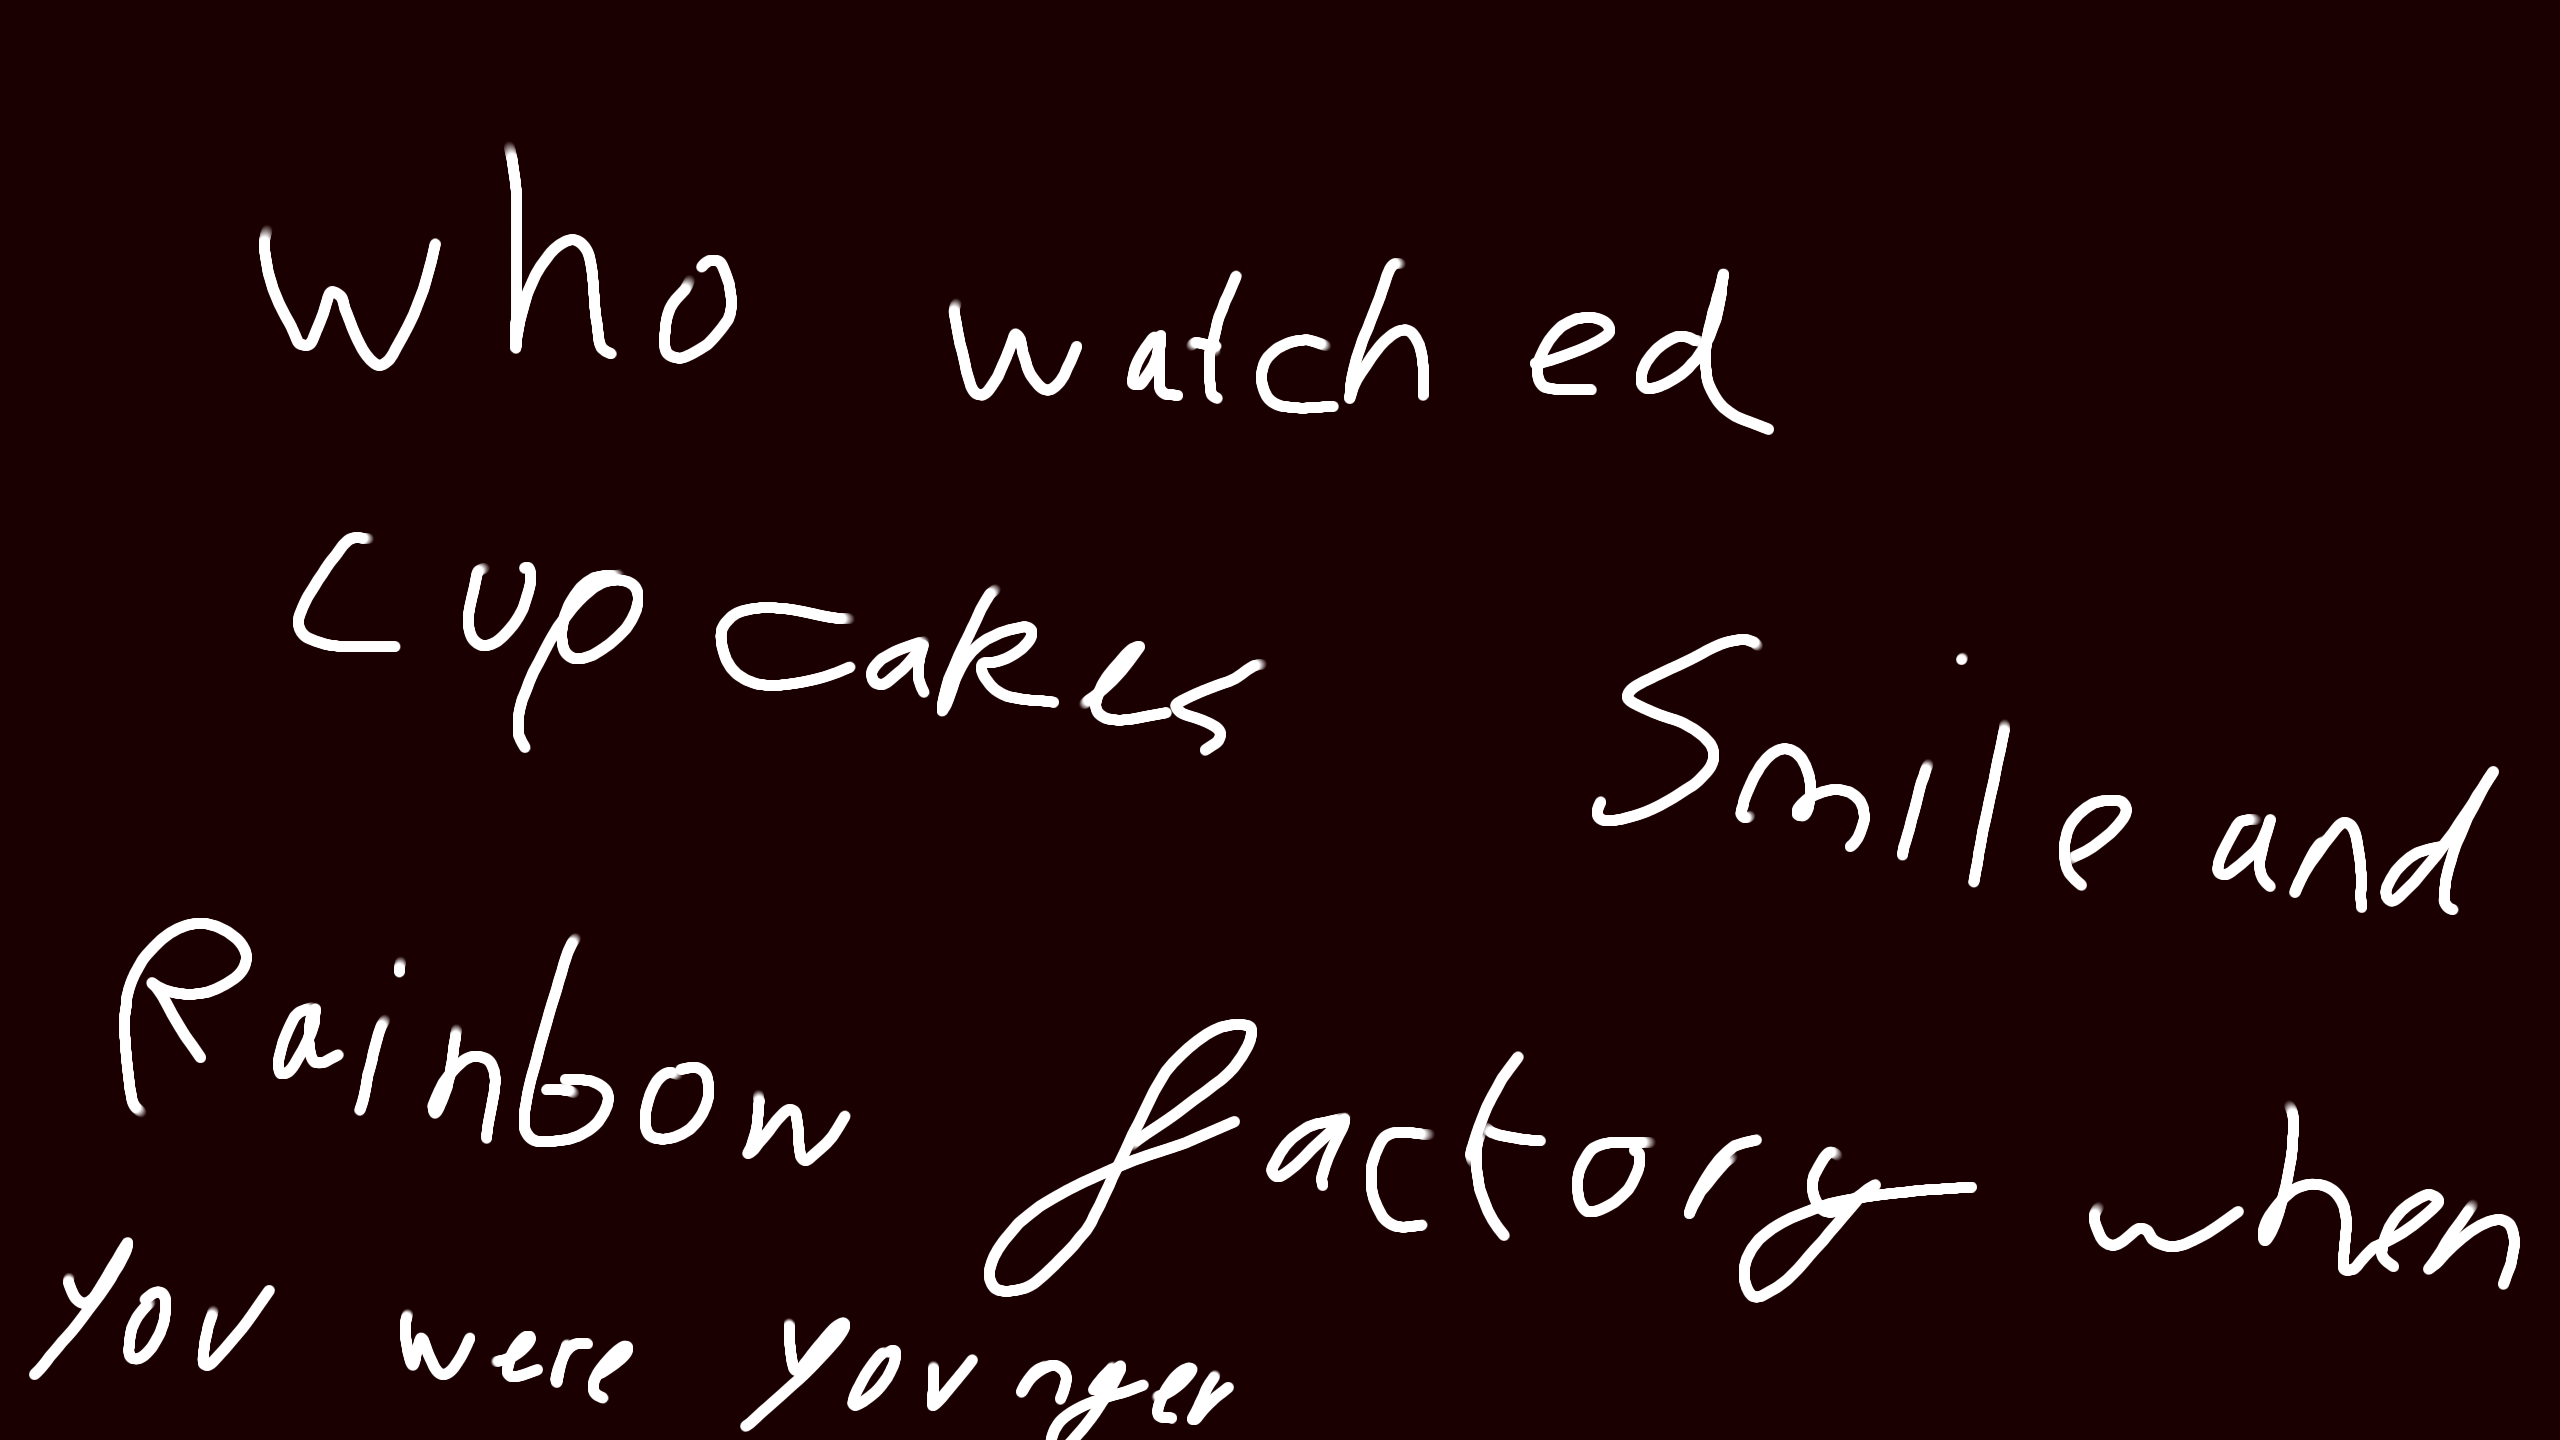 who watched
cupcakes Smile and
Rainbow factory when
you were younger